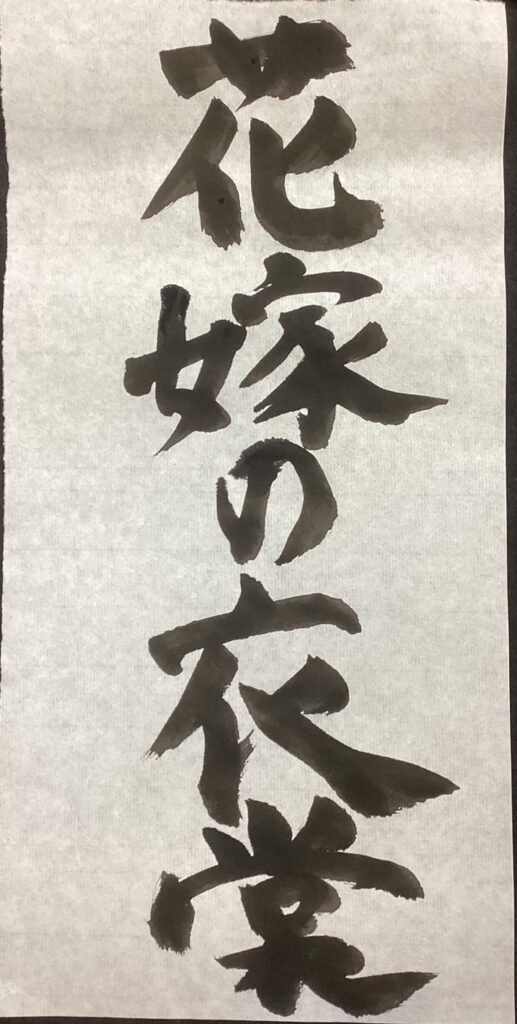 花嫁の衣裳